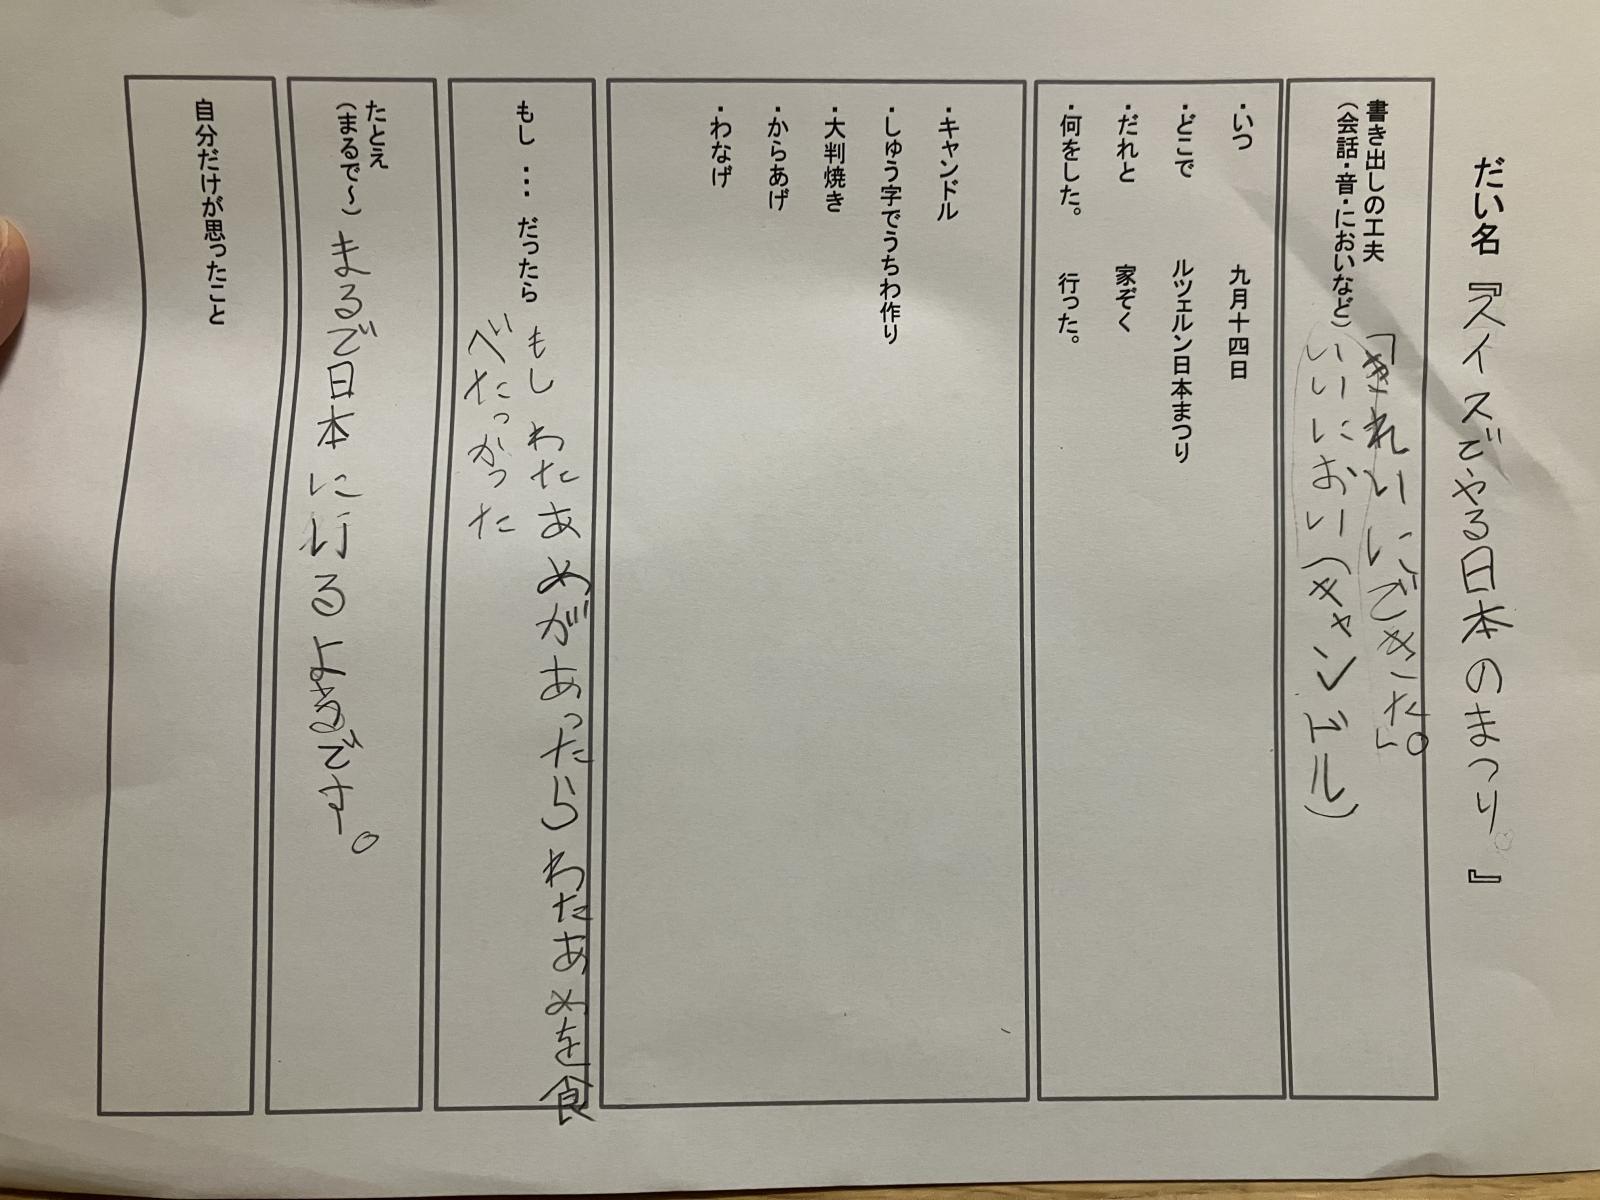 だい名『スイスでやる日本のまつり。』
書き出しの工夫
(会話・音・においなど)
「きれいにできた。」
いいにおい(キャンドル)
・いつ 九月十四日
・どこで ルツェルン日本まつり
・だれと 家ぞく
・何をした。 行った。
・キャンドル
・しゅう字でうちわ作り
・大判焼き
・からあげ
・わなげ
もし … だったら もしわたあめがあったらわたあめを食
べたいかった
たとえ
(まるで~) まるで日本に行るよるです。
自分だけが思ったこと